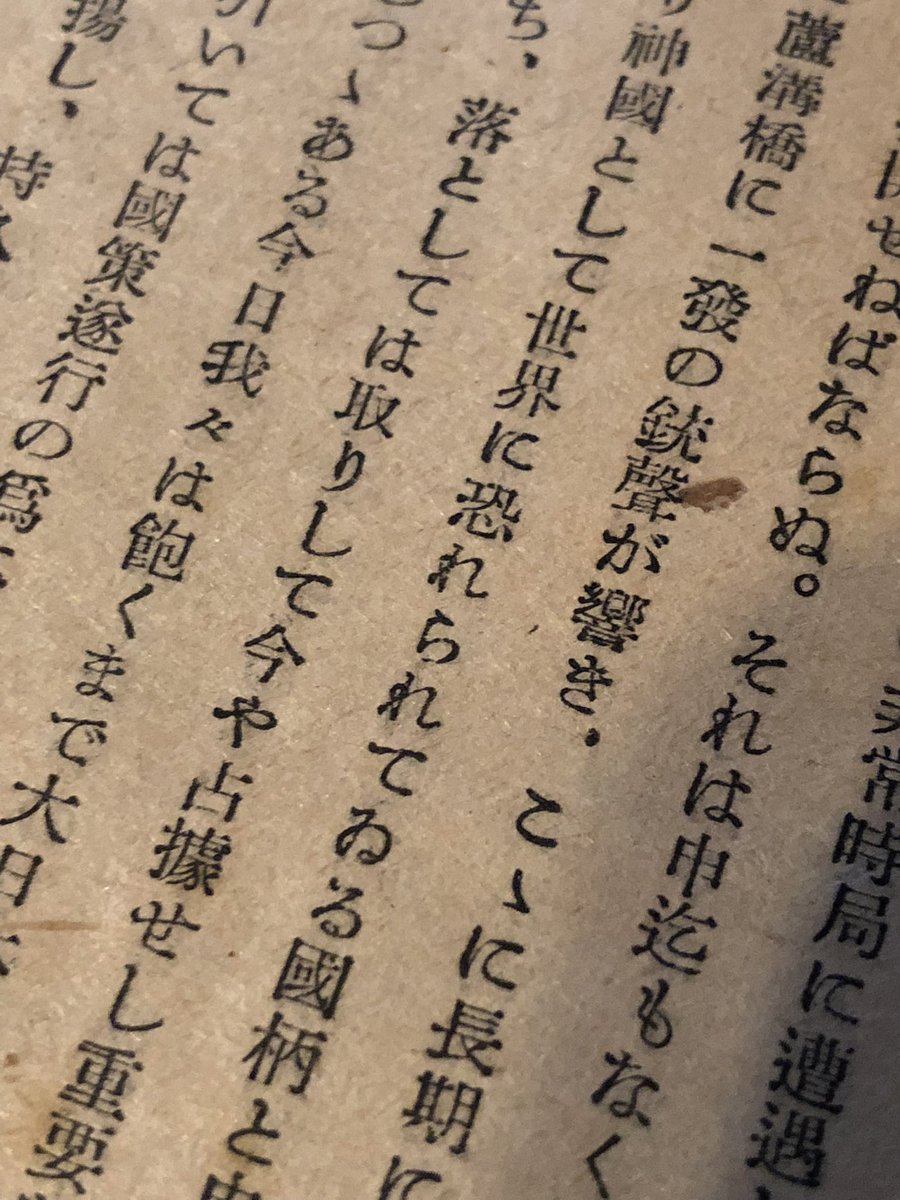 常時局に遭遇
せねばならぬ。それは申迄もなく
蘆溝橋に一發の銃聲が響き、こゝに長期に
神國として世界に恐れられてゐる國柄と
ち、落としては取りして今や占據せし重要
つゝある今日我々は飽くまで大日
いては國策遂行の爲
揚し、